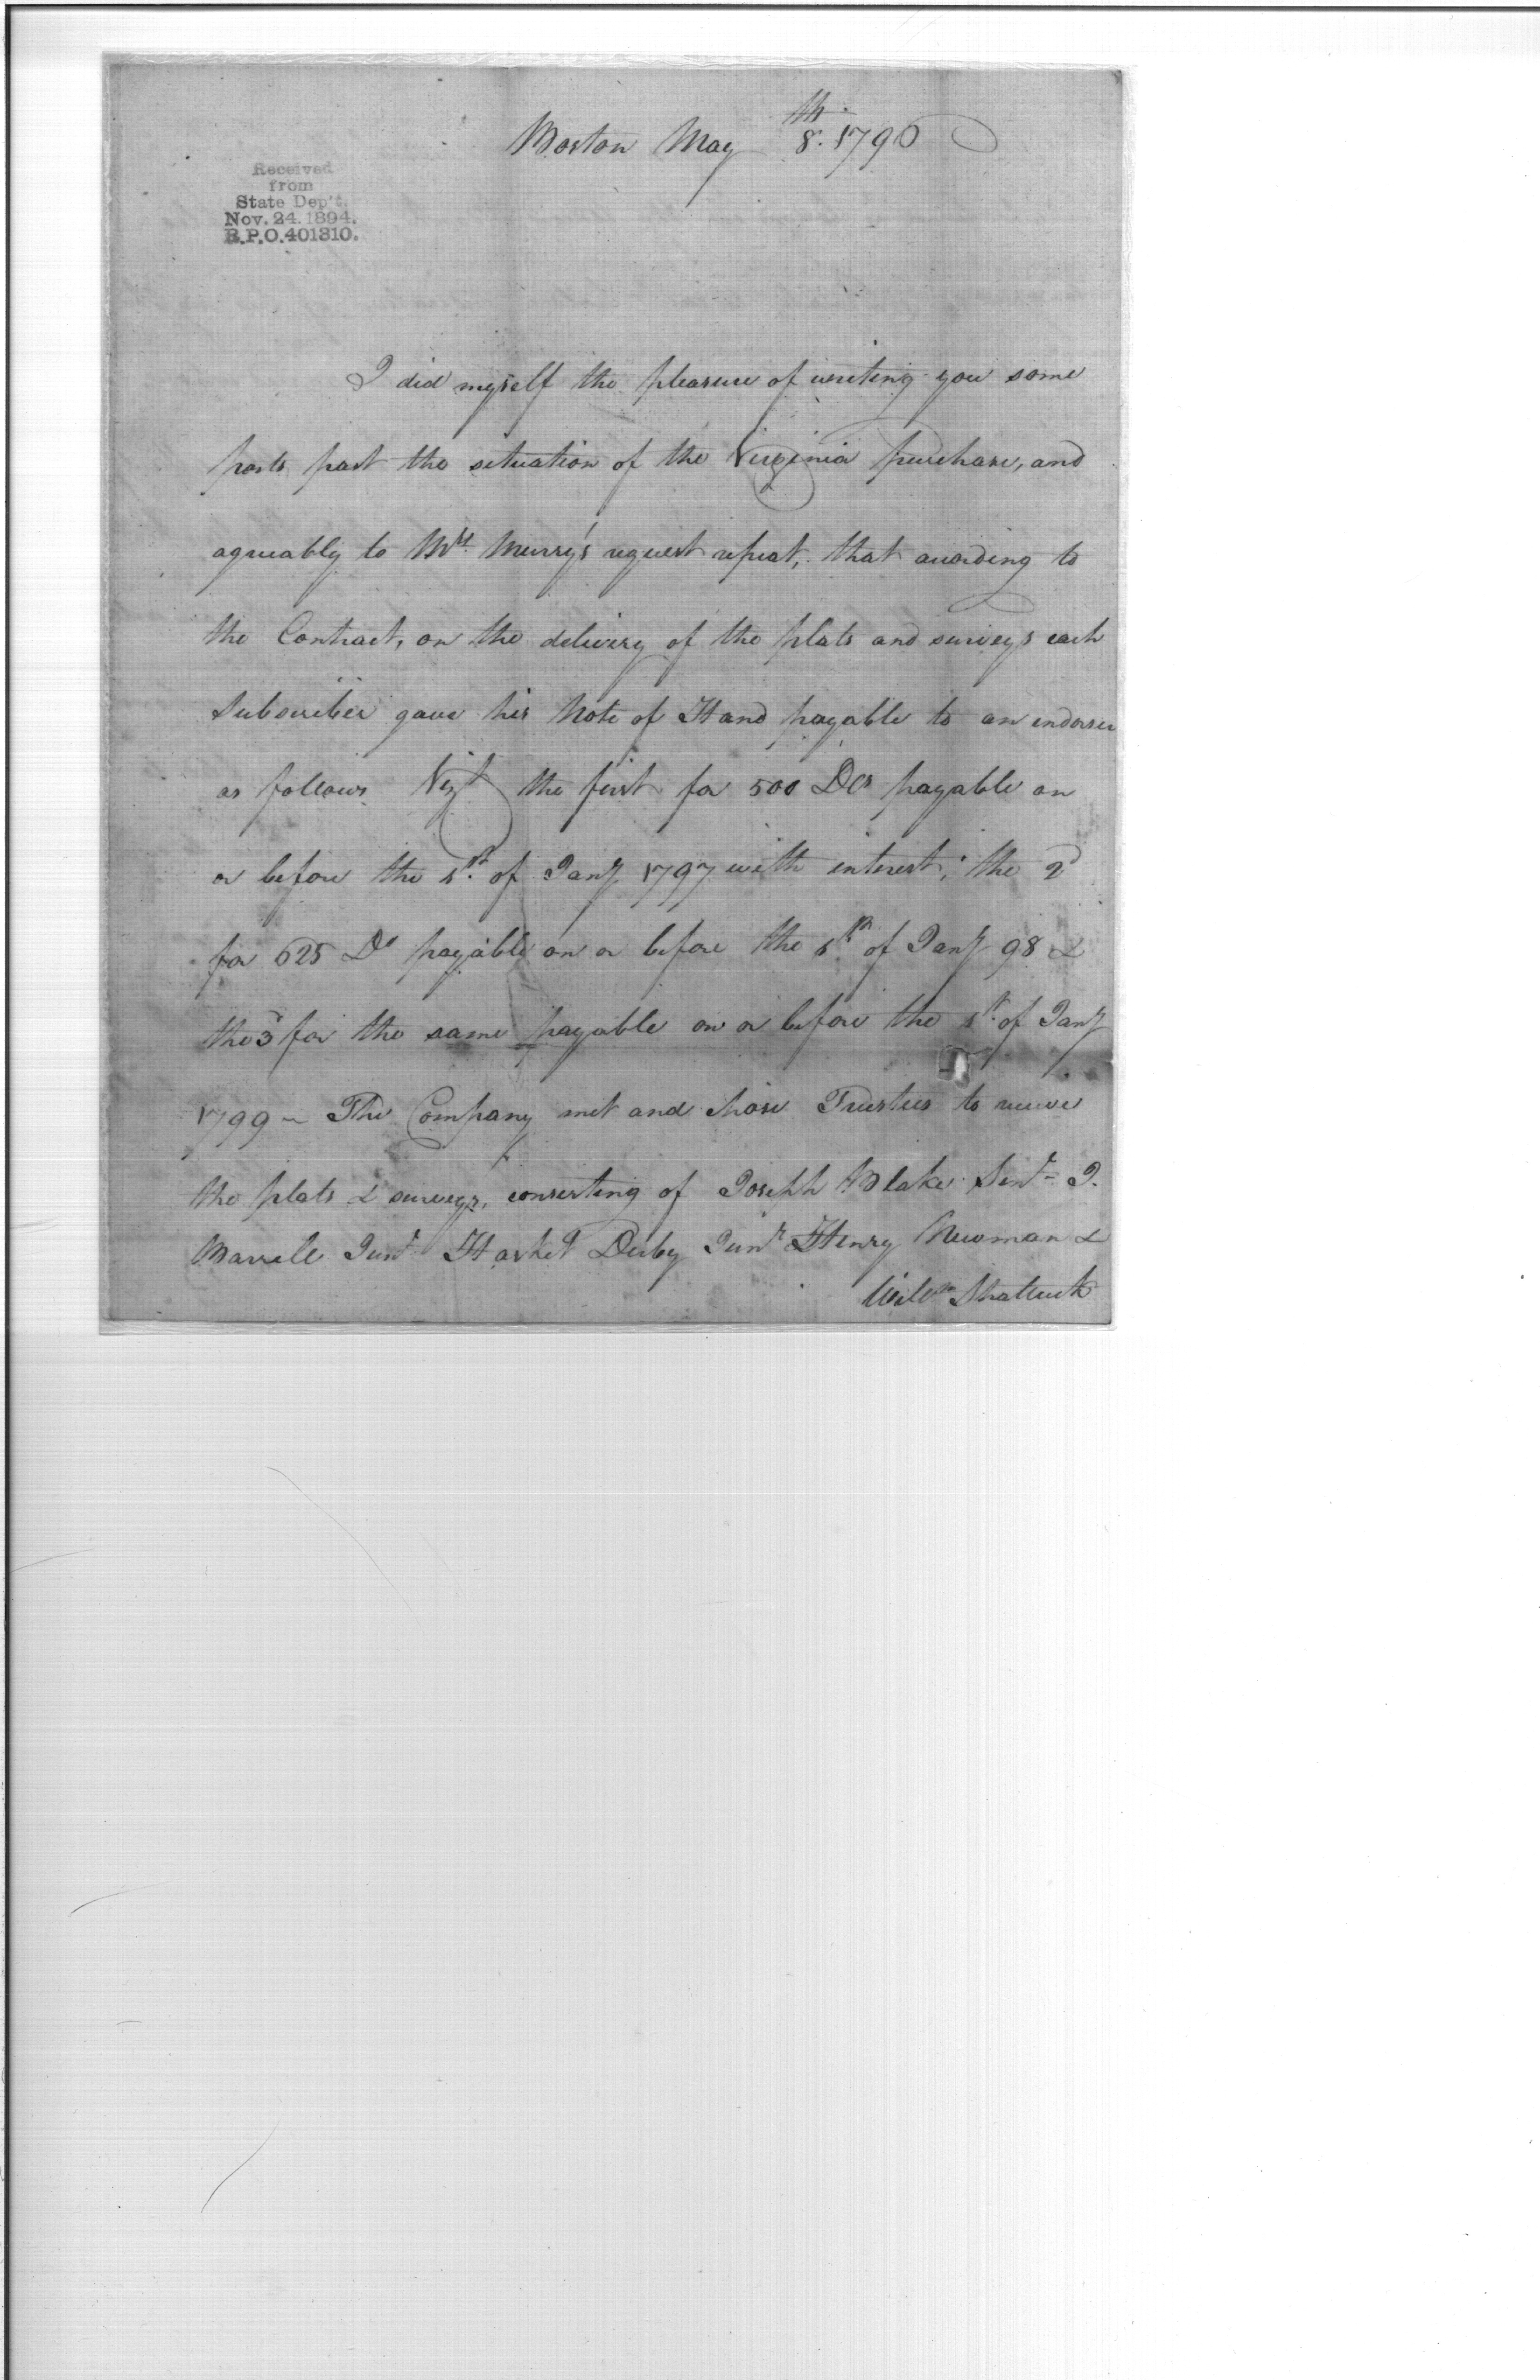 Boston May 8th. 1796
Received
from
State Dep't.
Nov. 24. 1894.
B.P.O. 401310.
I did myself the pleasure of writing you some
posts past the situation of the Virginia purchase, and
agreeably to Mrs. Murry's request repeat, that according to
the Contract, on the delivery of the plats and surveys each
Subscriber gave his Note of Hand payable to an endorser
as follows Vizt the first for 500 Dlrs payable on
or before the 1st. of Jany 1797 with interest; the 2d
for 625 Ds payable on or before the 1st. of Jany 98 &
the 3d for the same payable on or before the 1st. of Jany
1799 – The Company met and chose Trustees to receive
the plats & surveys, consisting of Joseph Blake Senr – J.
Marvell Junr Hasket Derby Junr Henry Newman &
Willm Shattuck